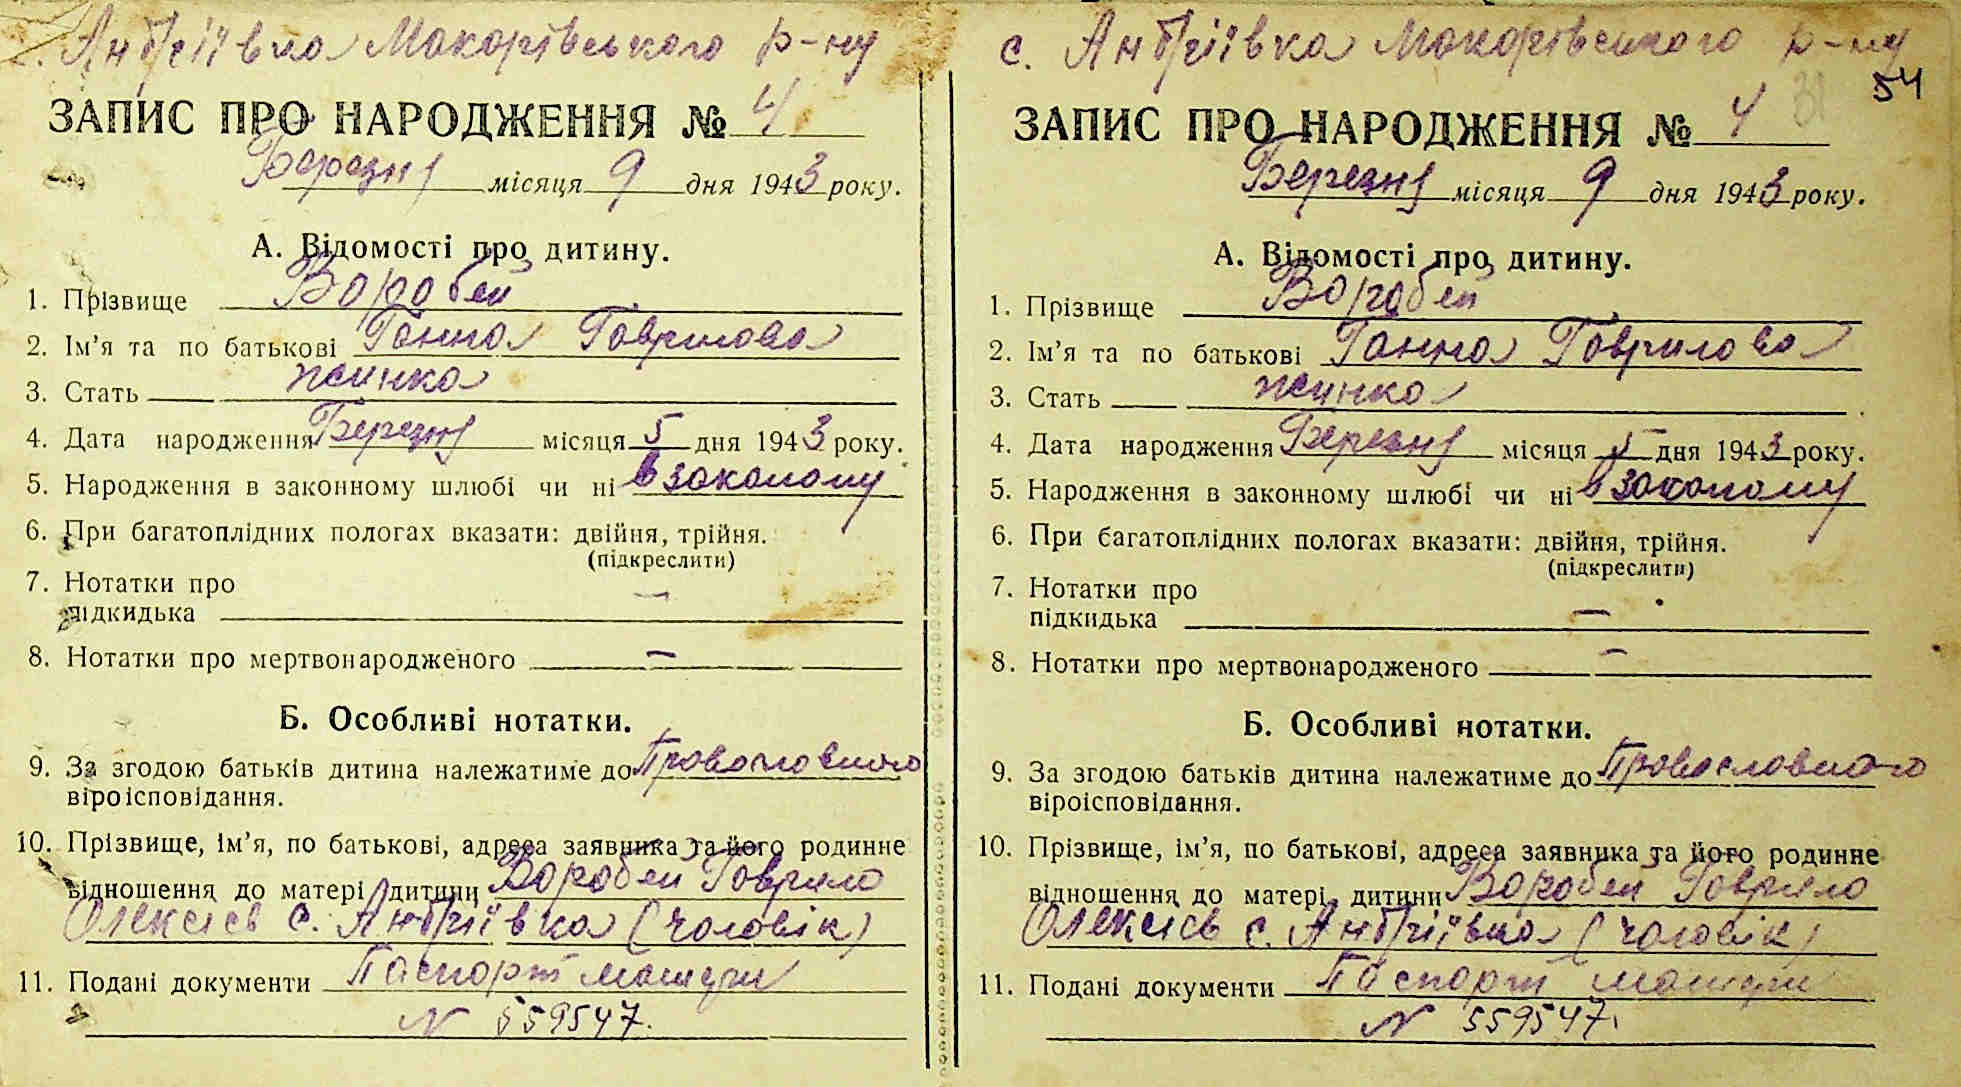 с. Андріївка Макарівського р-ну
ЗАПИС ПРО НАРОДЖЕННЯ № 4
Березня місяця 9 дня 1943 року.
А. Відомості про дитину.
1. Прізвище Воробей
2. Ім’я та по батькові Ганна Гаврилова
3. Стать жинка
4. Дата народження Березня місяця 5 дня 1943 року.
5. Народження в законному шлюбі чи ні в законому
6. При багатоплідних пологах вказати: двійня, трійня.
(підкреслити)
7. Нотатки про
підкидька —
8. Нотатки про мертвонародженого —
Б. Особливі нотатки.
9. За згодою батьків дитина належатиме до Православного
віроісповідання.
10. Прізвище, ім’я, по батькові, адреса заявника та його родинне
відношення до матері дитини Воробей Гаврило
Олексієв с. Андріївка (чоловік)
11. Подані документи Паспорт матери
N 559547.
с. Андріївка Макарівського р-ну
54
31
ЗАПИС ПРО НАРОДЖЕННЯ № 4
Березня місяця 9 дня 1943 року.
А. Відомості про дитину.
1. Прізвище Воробей
2. Ім’я та по батькові Ганна Гаврилова
3. Стать жинка
4. Дата народження Березня місяця 5 дня 1943 року.
5. Народження в законному шлюбі чи ні в законому
6. При багатоплідних пологах вказати: двійня, трійня.
(підкреслити)
7. Нотатки про
підкидька —
8. Нотатки про мертвонародженого —
Б. Особливі нотатки.
9. За згодою батьків дитина належатиме до Православного
віроісповідання.
10. Прізвище, ім’я, по батькові, адреса заявника та його родинне
відношення до матері дитини Воробей Гаврило
Олексієв с. Андріївка (чоловік)
11. Подані документи Паспорт матери
N 559547.